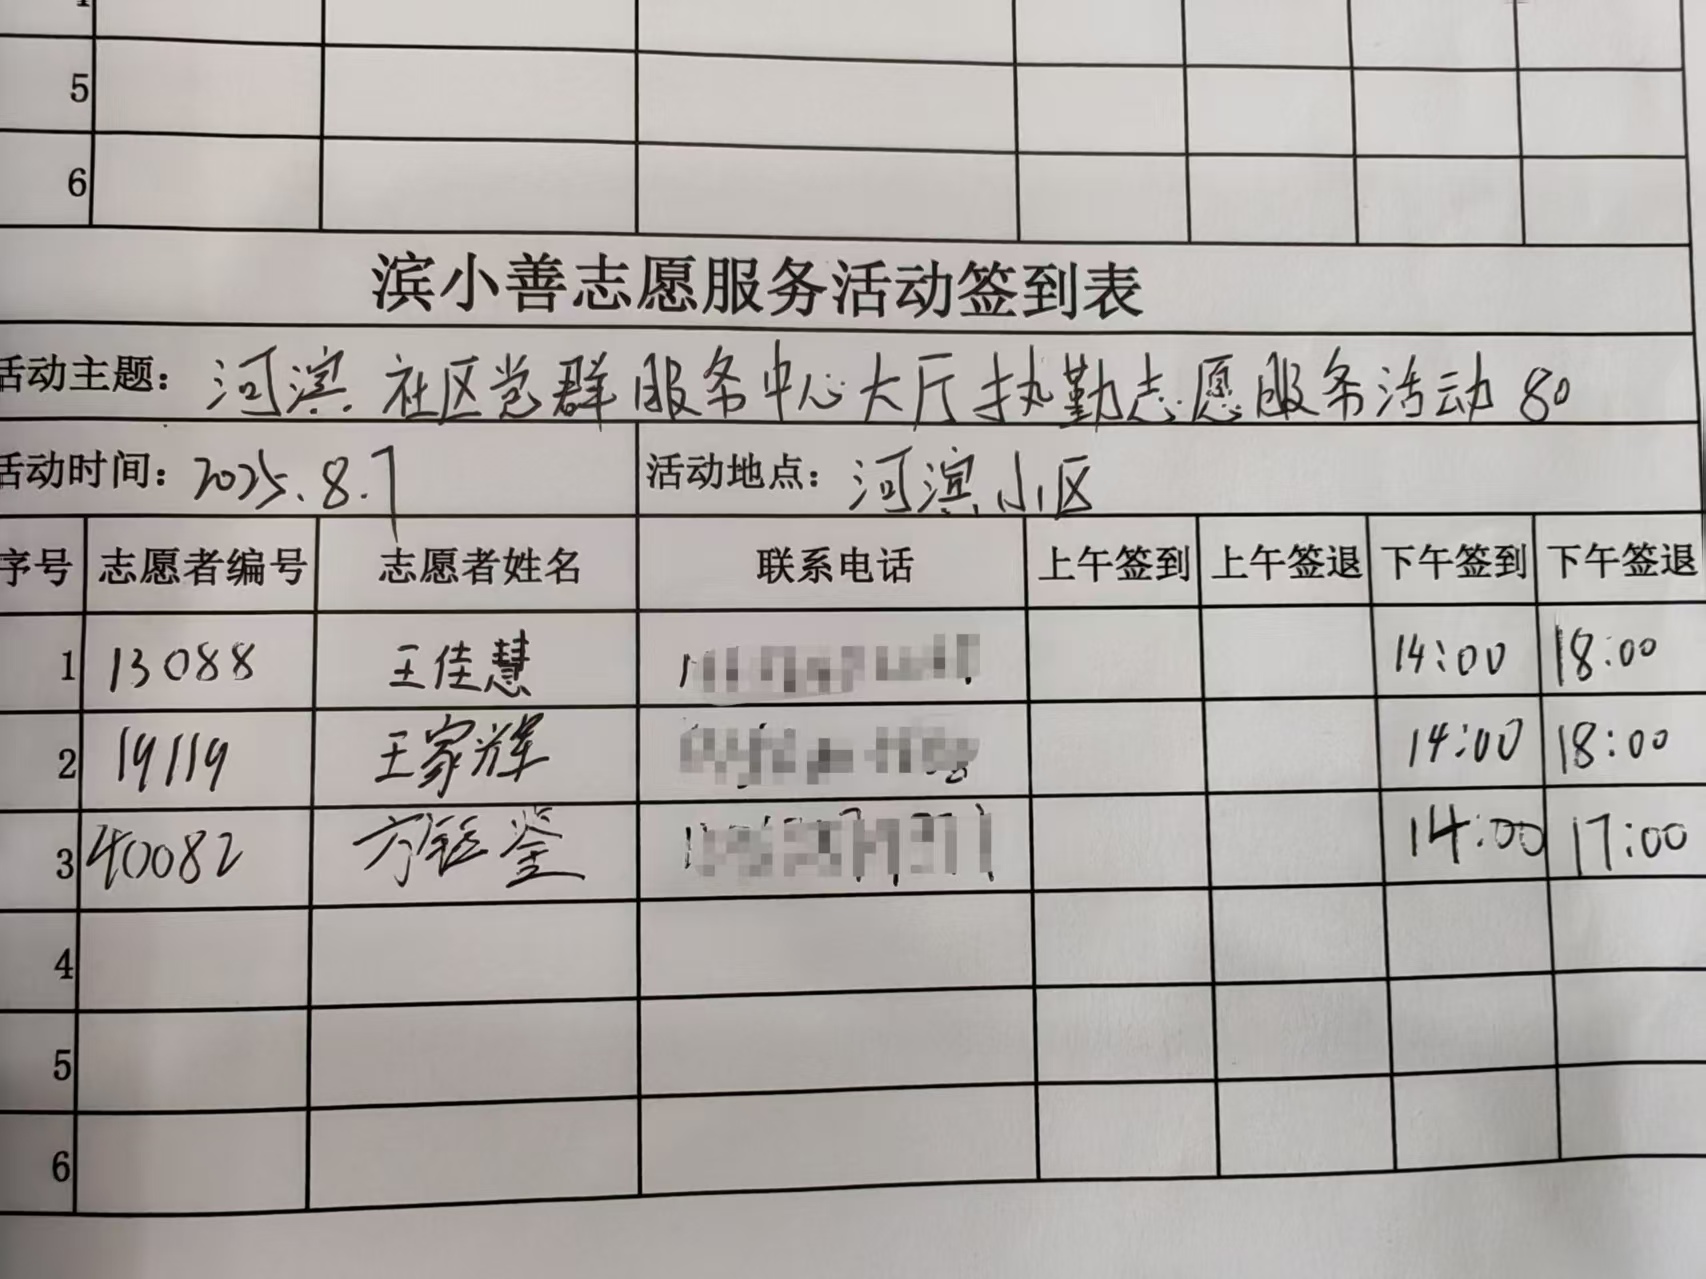 5
6
滨小善志愿服务活动签到表
活动主题：河滨社区党群服务中心大厅执勤志愿服务活动80
活动时间：2025.8.7 活动地点：河滨小区
序号 志愿者编号 志愿者姓名 联系电话 上午签到 上午签退 下午签到 下午签退
1 13088 王佳慧 14:00 18:00
2 19119 王家辉 14:00 18:00
3 40082 方钰鉴 14:00 17:00
4
5
6